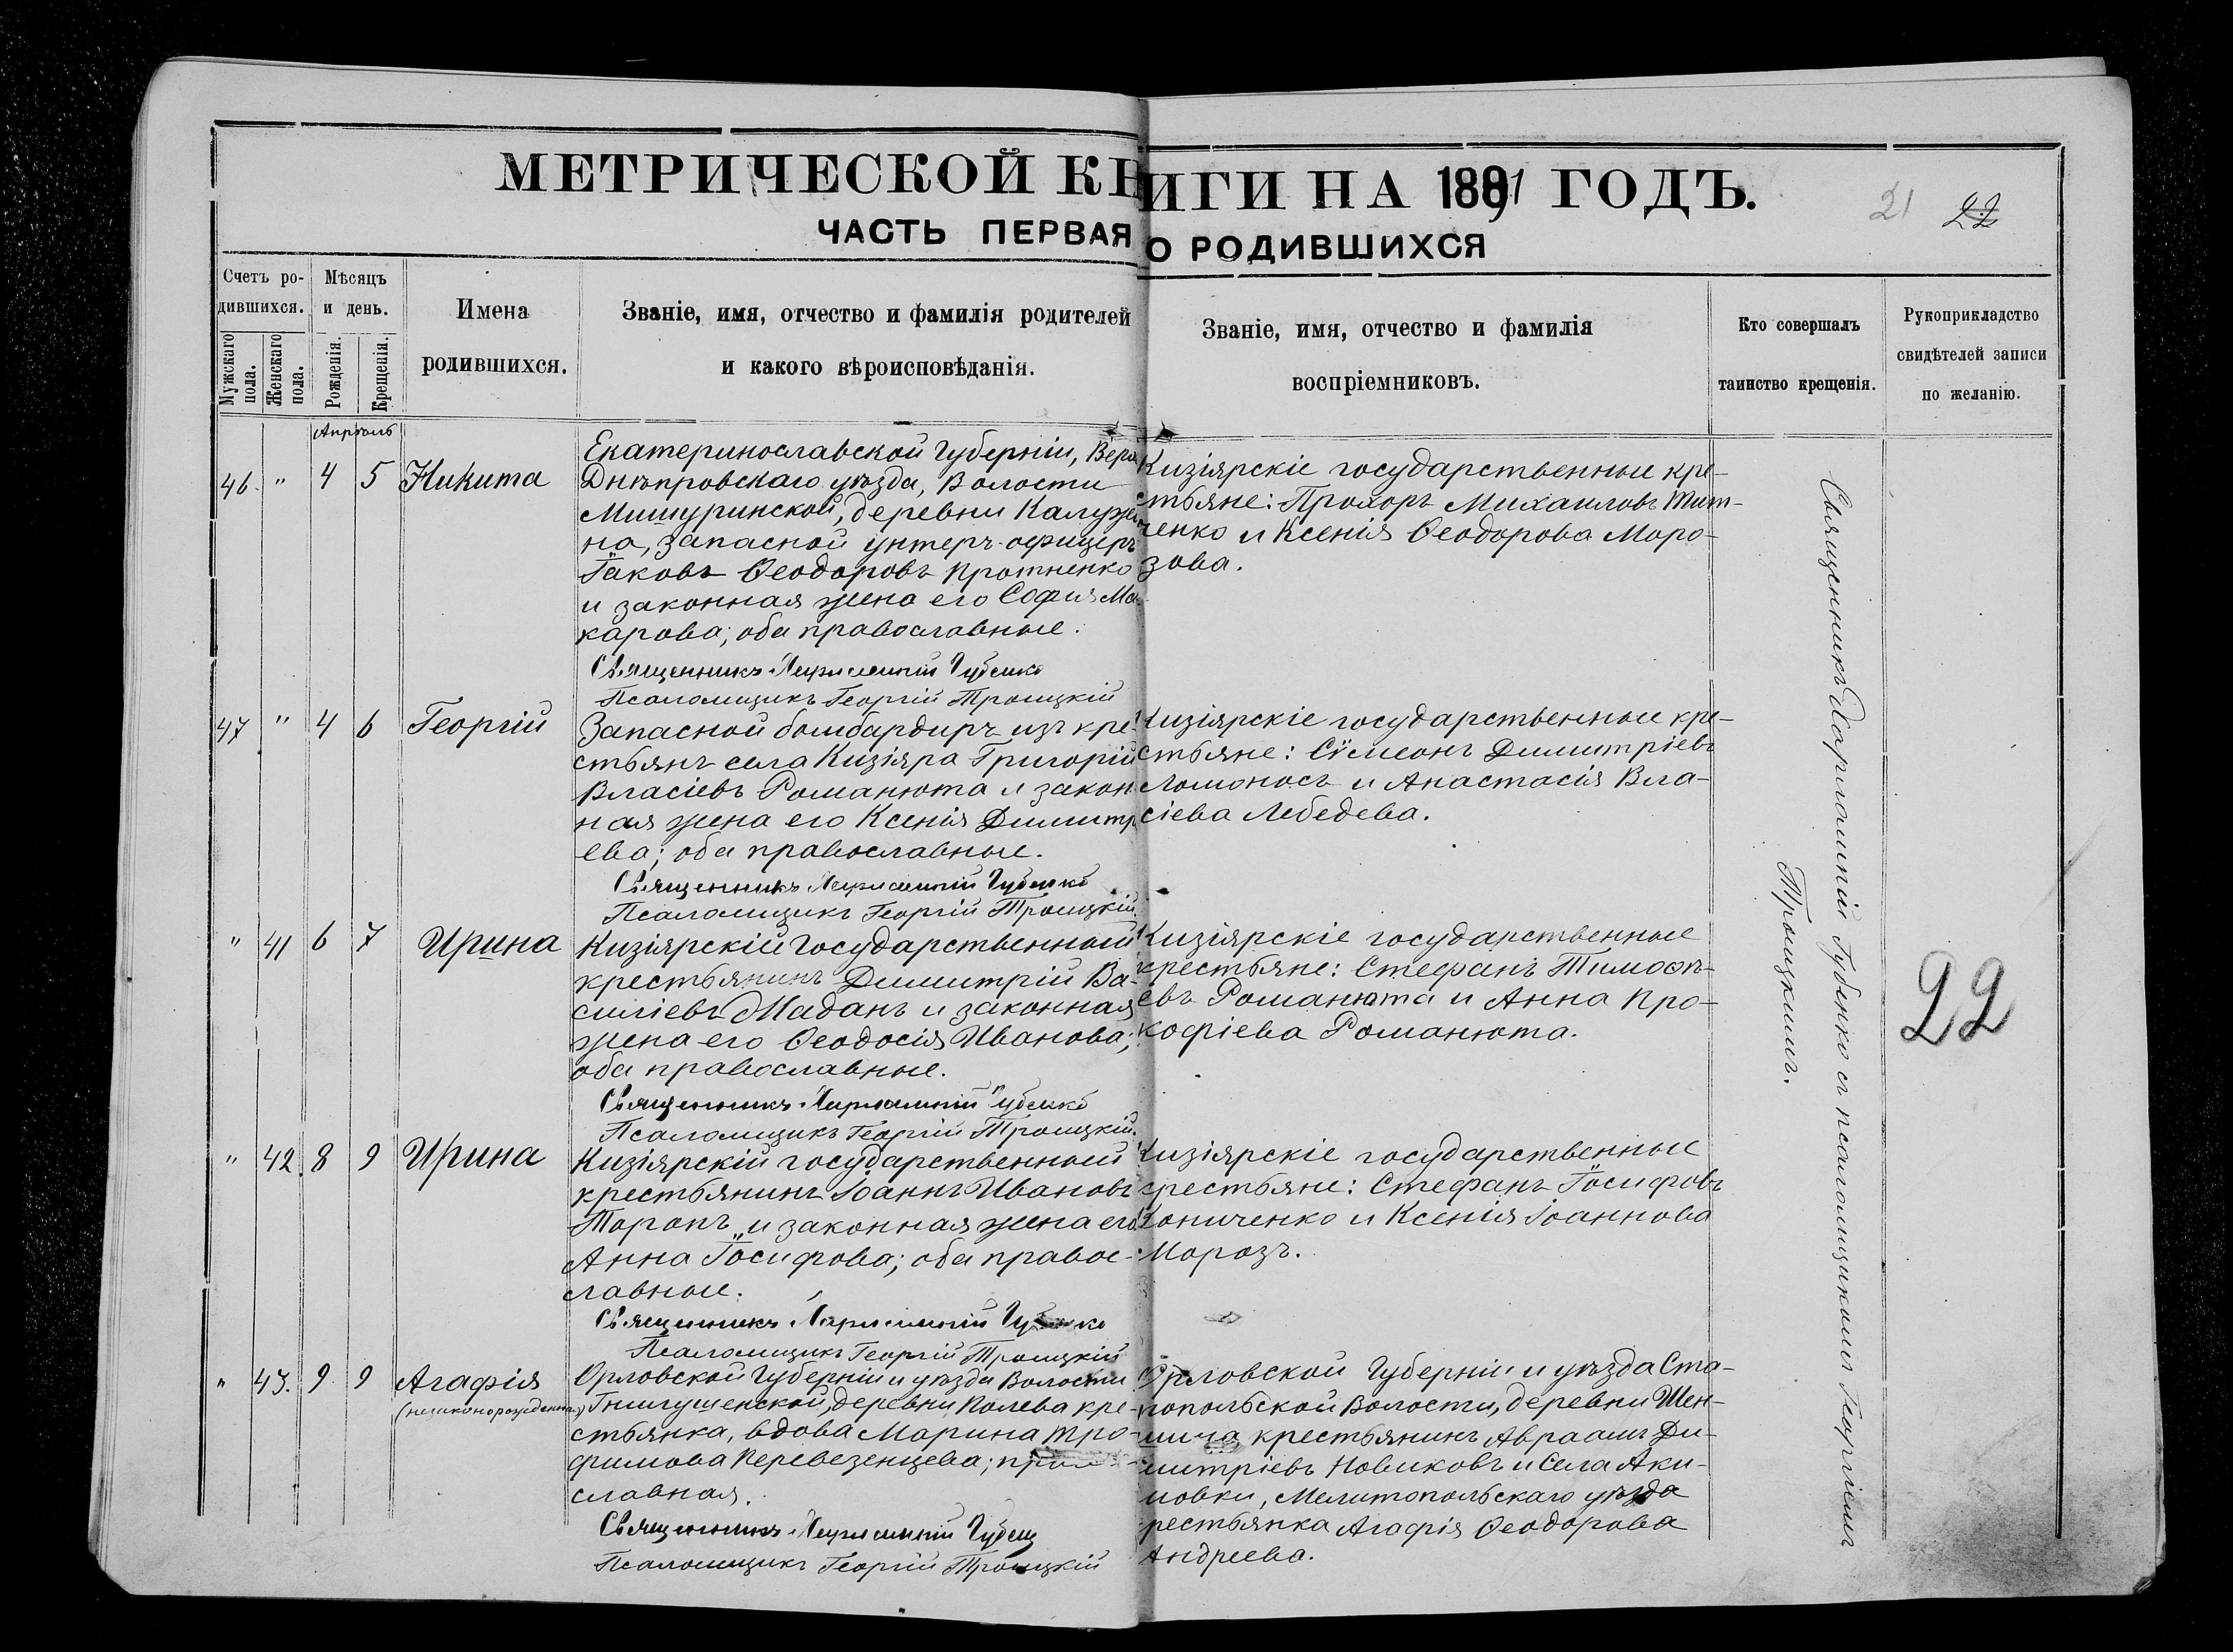 МЕТРИЧЕСКОЙ КНИГИ НА 1891 ГОДЪ.
21 22
ЧАСТЬ ПЕРВАЯ О РОДИВШИХСЯ
Счетъ родившихся.
Мужскаго пола.
Женскаго пола.
Мѣсяцъ и день.
Рожденія.
Крещенія.
Имена
родившихся.
Званіе, имя, отчество и фамилія родителей
и какого вѣроисповѣданія.
Званіе, имя, отчество и фамилія
воспріемниковъ.
Кто совершалъ
таинство крещенія.
Рукоприкладство
свидѣтелей записи
по желанію.
Апрѣль
46. " 4 5 Никита
Екатеринославской губерніи, Верх
Днѣпровскаго уѣзда, Волости
Мишуринской, деревни
на, запасной унтеръ-офицеръ
Іаковъ Ѳеодоровъ
и законная жена его Софія Ма-
карова; оба православные.
Священникъ Харлампій Губенко
Псаломщикъ Георгій Троицкій
Кизіярскіе государственные кре-
стьяне: Прохоръ Михаиловъ Тит-
ченко и Ксенія Ѳеодорова Моро-
зова.
47 " 4 6 Георгій
Запасной бомбардиръ изъ кре-
стьянъ села Кизіяра Григорій
Власіевъ Романюта и закон-
ная жена его Ксенія Димитрі
ева; оба православные.
Священникъ Харлампій Губенко
Псаломщикъ Георгій Троицкій.
Кизіярскіе государственные кре-
стьяне: Сѵмеонъ Димитріевъ
Ломоносъ и Анастасія Вла-
сіева Лебедева.
" 41 6 7 Ирина
Кизіярскій государственный
крестьянинъ Димитрій Ва-
силіевъ Маданъ и законная
жена его Ѳеодосія Иванова;
оба православные.
Священникъ Харлампій Губенко
Псаломщикъ Георгій Троицкій.
Кизіярскіе государственные
крестьяне: Стефанъ Тимоѳѣ-
евъ Романюта и Анна Про-
кофіева Романюта.
" 42. 8 9 Ирина
Кизіярскій государственный
крестьянинъ Іоаннъ Ивановъ
Торопъ и законная жена его
Анна Іосифова; оба право-
славные.
Священникъ Харлампій Губенко
Псаломщикъ Георгій Троицкій
Кизіярскіе государственные
крестьяне: Стефанъ Іосифовъ
Кониченко и Ксенія Іоаннова
Морозъ.
" 43. 9 9 Агафія
(незаконорожденная)
Орловской губерніи и уѣзда Волости
деревни Полева кре-
стьянка, вдова Марина Тро-
фимова Перевезенцева; право-
славная.
Священникъ Харлампій Губенко
Псаломщикъ Георгій Троицкій
Орловской губерніи и уѣзда Ста-
попольской Волости, деревни Шен-
шина крестьянинъ Авраамъ Ди-
митріевъ Новиковъ и села Аки-
мовки, Мелитопольскаго уѣзда
крестьянка Агафія Ѳеодорова
Андреева.
Священникъ Харлампій Губенко съ псаломщикомъ Георгіемъ
Троицкимъ.
22